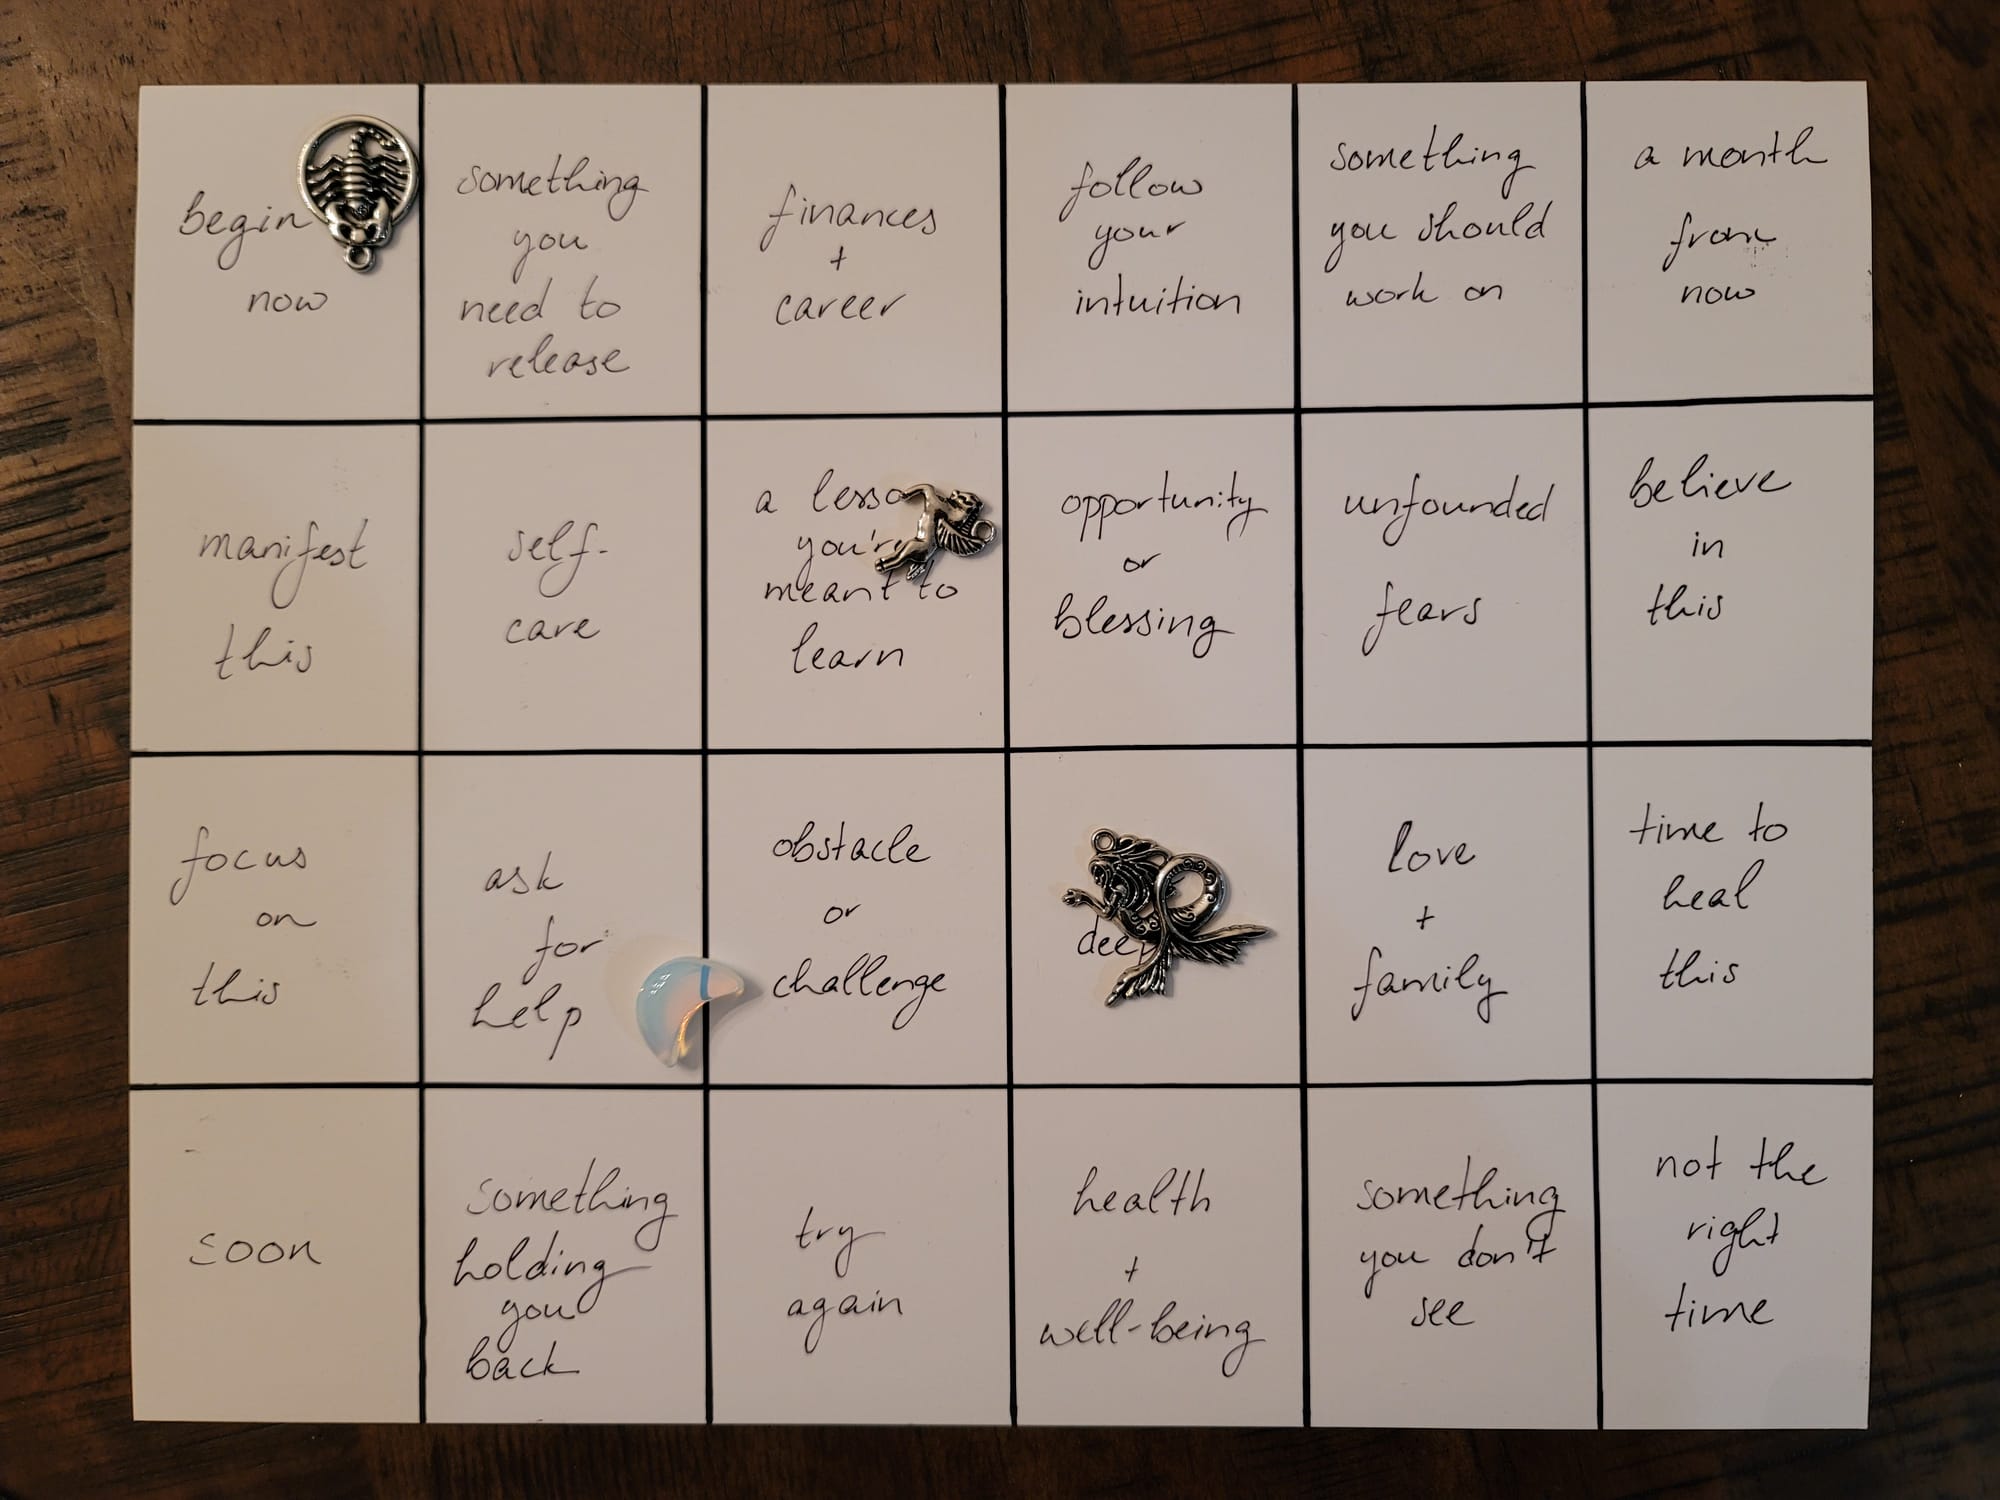 begin
now
something
you
need to
release
finances
+
career
follow
your
intuition
something
you should
work on
a month
from
now
manifest
this
self-
care
a lesson
you're
meant to
learn
opportunity
or
blessing
unfounded
fears
believe
in
this
focus
on
this
ask
for
help
obstacle
or
challenge
love
+
family
time to
heal
this
soon
something
holding
you
back
try
again
health
+
well-being
something
you don't
see
not the
right
time